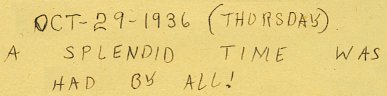 OCT-29-1936 (THURSDAY)
A SPLENDID TIME WAS
HAD BY ALL!